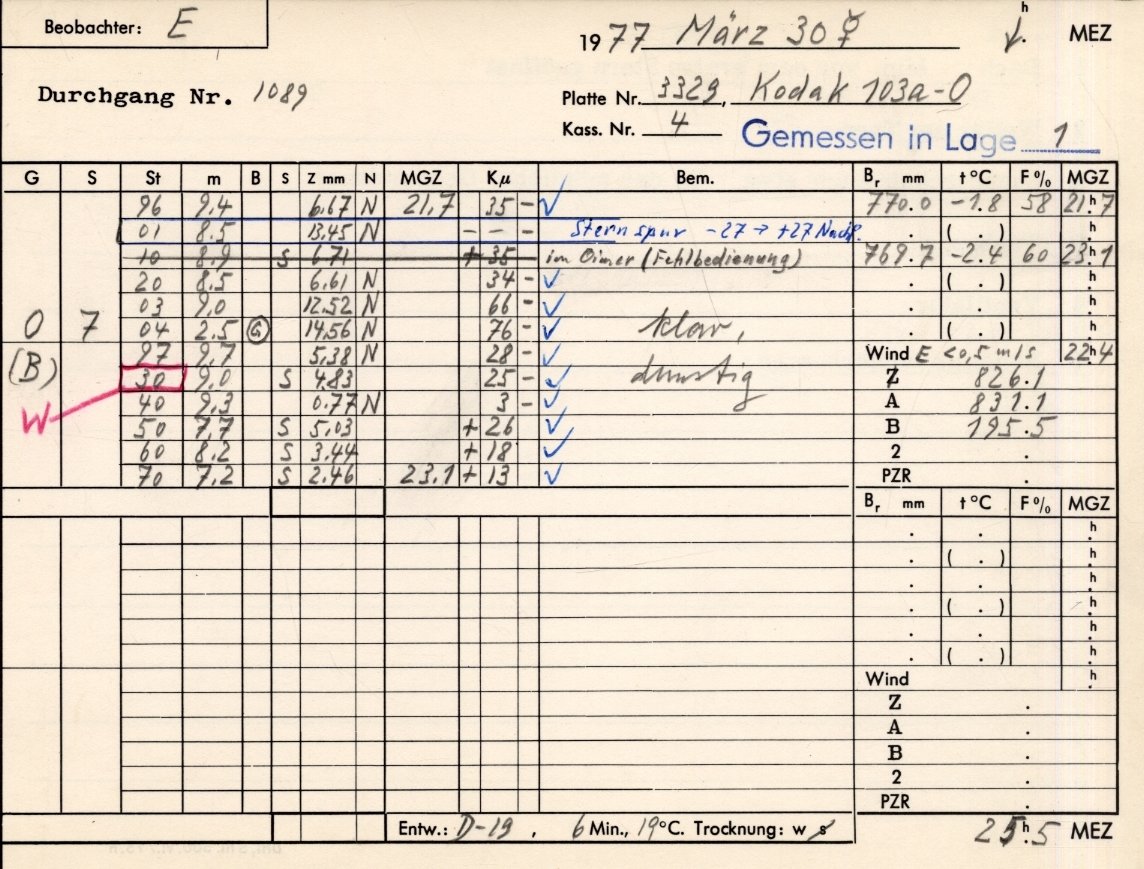 Beobachter: E
1977 März 30 ☿ h MEZ
Durchgang Nr. 1089
Platte Nr. 3329, Kodak 103a-O
Kass. Nr. 4 Gemessen in Lage 1
G S St m B S Z mm N MGZ Kμ Bem. Br mm t°C F% MGZ
96 9.4 6.67 N 21.7 35 - ✓ 770.0 -1.8 58 21h.7
01 8.5 13.45 N - - - Sternspur -27 → +27 . ( . ) h
10 8.9 S 6.71 + 35 im Eimer (Fehlbedienung) 769.7 -2.4 60 23h.1
20 8.5 6.61 N 34 - ✓ . ( . ) h
03 9.0 12.52 N 66 - ✓ . . h
O 7 04 2.5 G 14.56 N 76 - ✓ klar, . ( . ) h
(B) 97 9.7 5.38 N 28 - ✓ Wind E <0,5 m/s 22h4
30 9.0 S 4.83 25 - ✓ dunstig Z 826.1
W 40 9.3 0.77 N 3 - ✓ A 831.1
50 7.7 S 5.03 + 26 ✓ B 195.5
60 8.2 S 3.44 + 18 ✓ 2 .
70 7.2 S 2.46 23.1 + 13 ✓ PZR .
Br mm t°C F% MGZ
. . h
. ( . ) h
. . h
. ( . ) h
. . h
. ( . ) h
Wind h
Z .
A .
B .
2 .
PZR .
Entw.: D-19, 6 Min., 19°C. Trocknung: w s 25h.5 MEZ